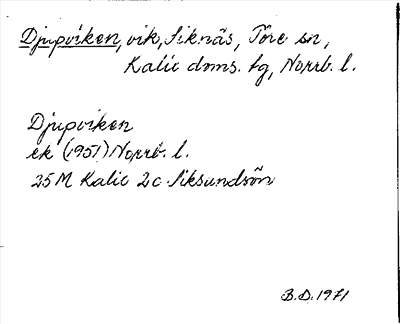 Djupviken, vik, Siknäs, Töre sn,
Kalix doms. tg, Norrb. l.
Djupviken
ek (1951) Norrb. l.
25M Kalix 2c Siksundsön
B.D. 1971